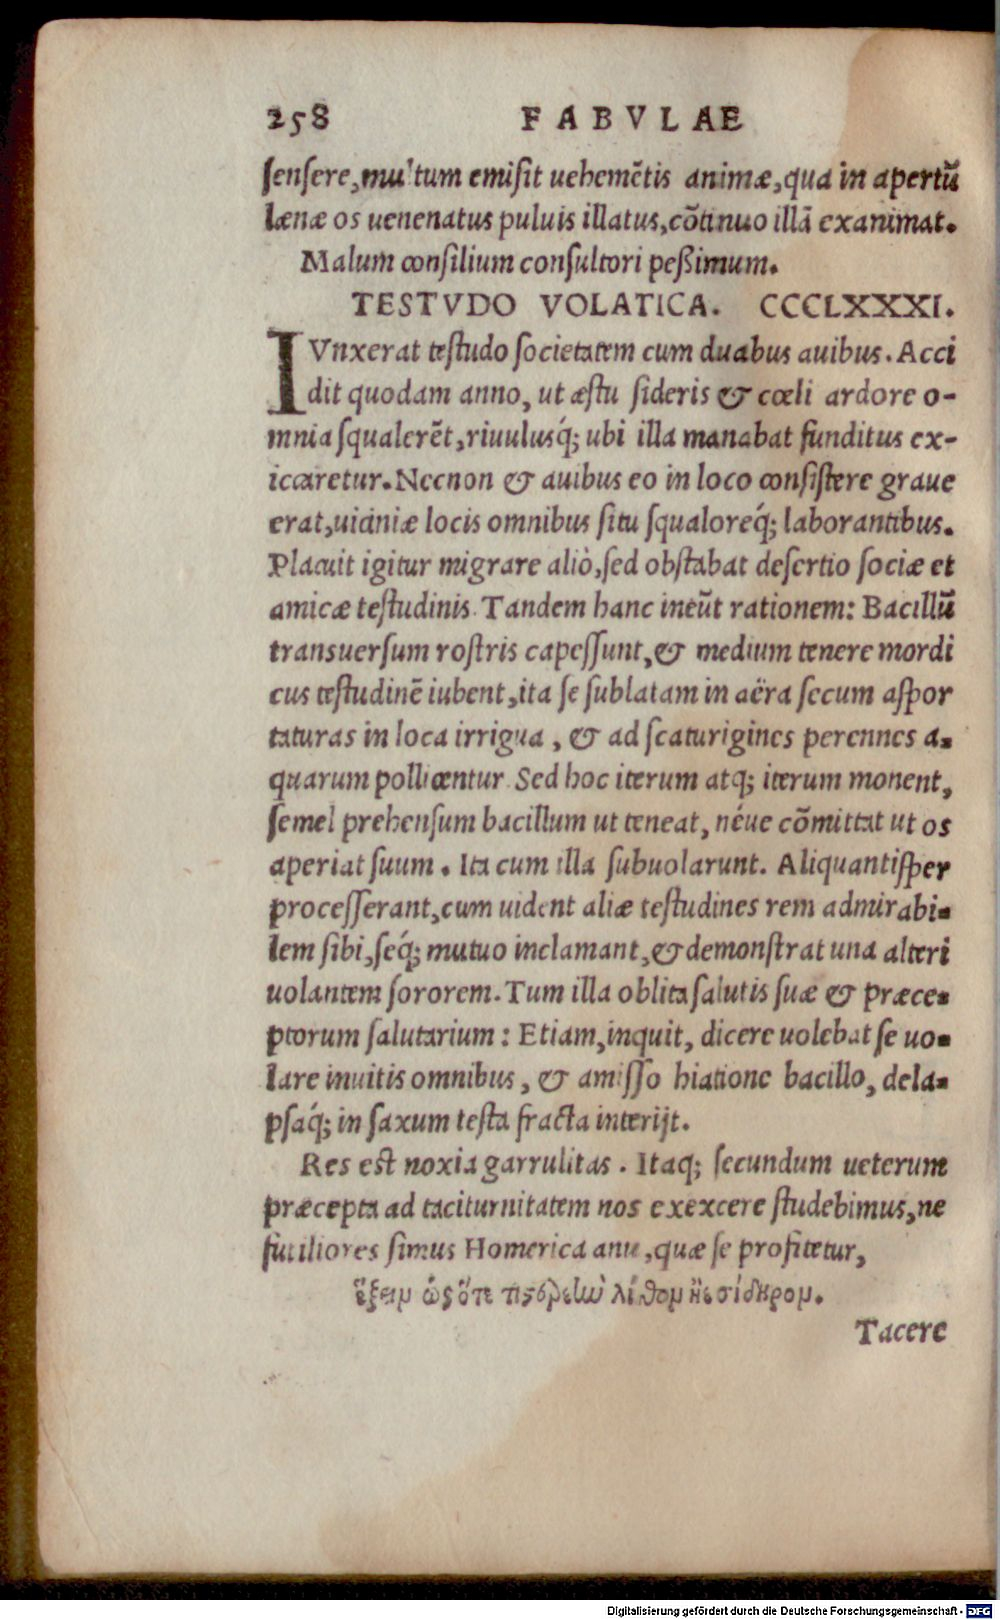 258 FABVLAE
sensere, multum emisit uehemẽtis animæ, qua in apertũ
lænæ os uenenatus puluis illatus, cõtinuo illã exanimat.
Malum consilium consultori peßimum.
TESTVDO VOLATICA. CCCCLXXXI.
IVnxerat testudo societatem cum duabus auibus. Acci
dit quodam anno, ut æstu sideris & cœli ardore o-
mnia squalerẽt, riuulusq́; ubi illa manabat funditus ex-
iccaretur. Necnon & auibus eo in loco consistere graue
erat, uiciniæ locis omnibus situ squaloreq́; laborantibus.
Placuit igitur migrare aliò, sed obstabat desertio sociæ et
amicæ testudinis. Tandem hanc ineũt rationem: Bacillũ
transuersum rostris capessunt, & medium tenere mordi
cus testudinẽ iubent, ita se sublatam in aëra secum aspor
taturas in loca irrigua, & ad scaturigines perennes a-
quarum pollicentur. Sed hoc iterum atq; iterum monent,
semel prehensum bacillum ut teneat, néue cõmittat ut os
aperiat suum. Ita cum illa subuolarunt. Aliquantisper
processerant, cum uident aliæ testudines rem admirabi-
lem sibi, seq́; mutuo inclamant, & demonstrat una alteri
uolantem sororem. Tum illa oblita salutis suæ & præce-
ptorum salutarium: Etiam, inquit, dicere uolebat se uo-
lare inuitis omnibus, & amisso hiatione bacillo, dela-
psaq́; in saxum testa fracta interijt.
Res est noxia garrulitas. Itaq; secundum ueterum
præcepta ad taciturnitatem nos exexcere studebimus, ne
futiliores simus Homerica anu, quæ se profitetur,
ἕξειν ὡς ὅτε τις ϛερεὼ λίθον ἠὲ σίδηρον.
Tacere
Digitalisierung gefördert durch die Deutsche Forschungsgemeinschaft - DFG